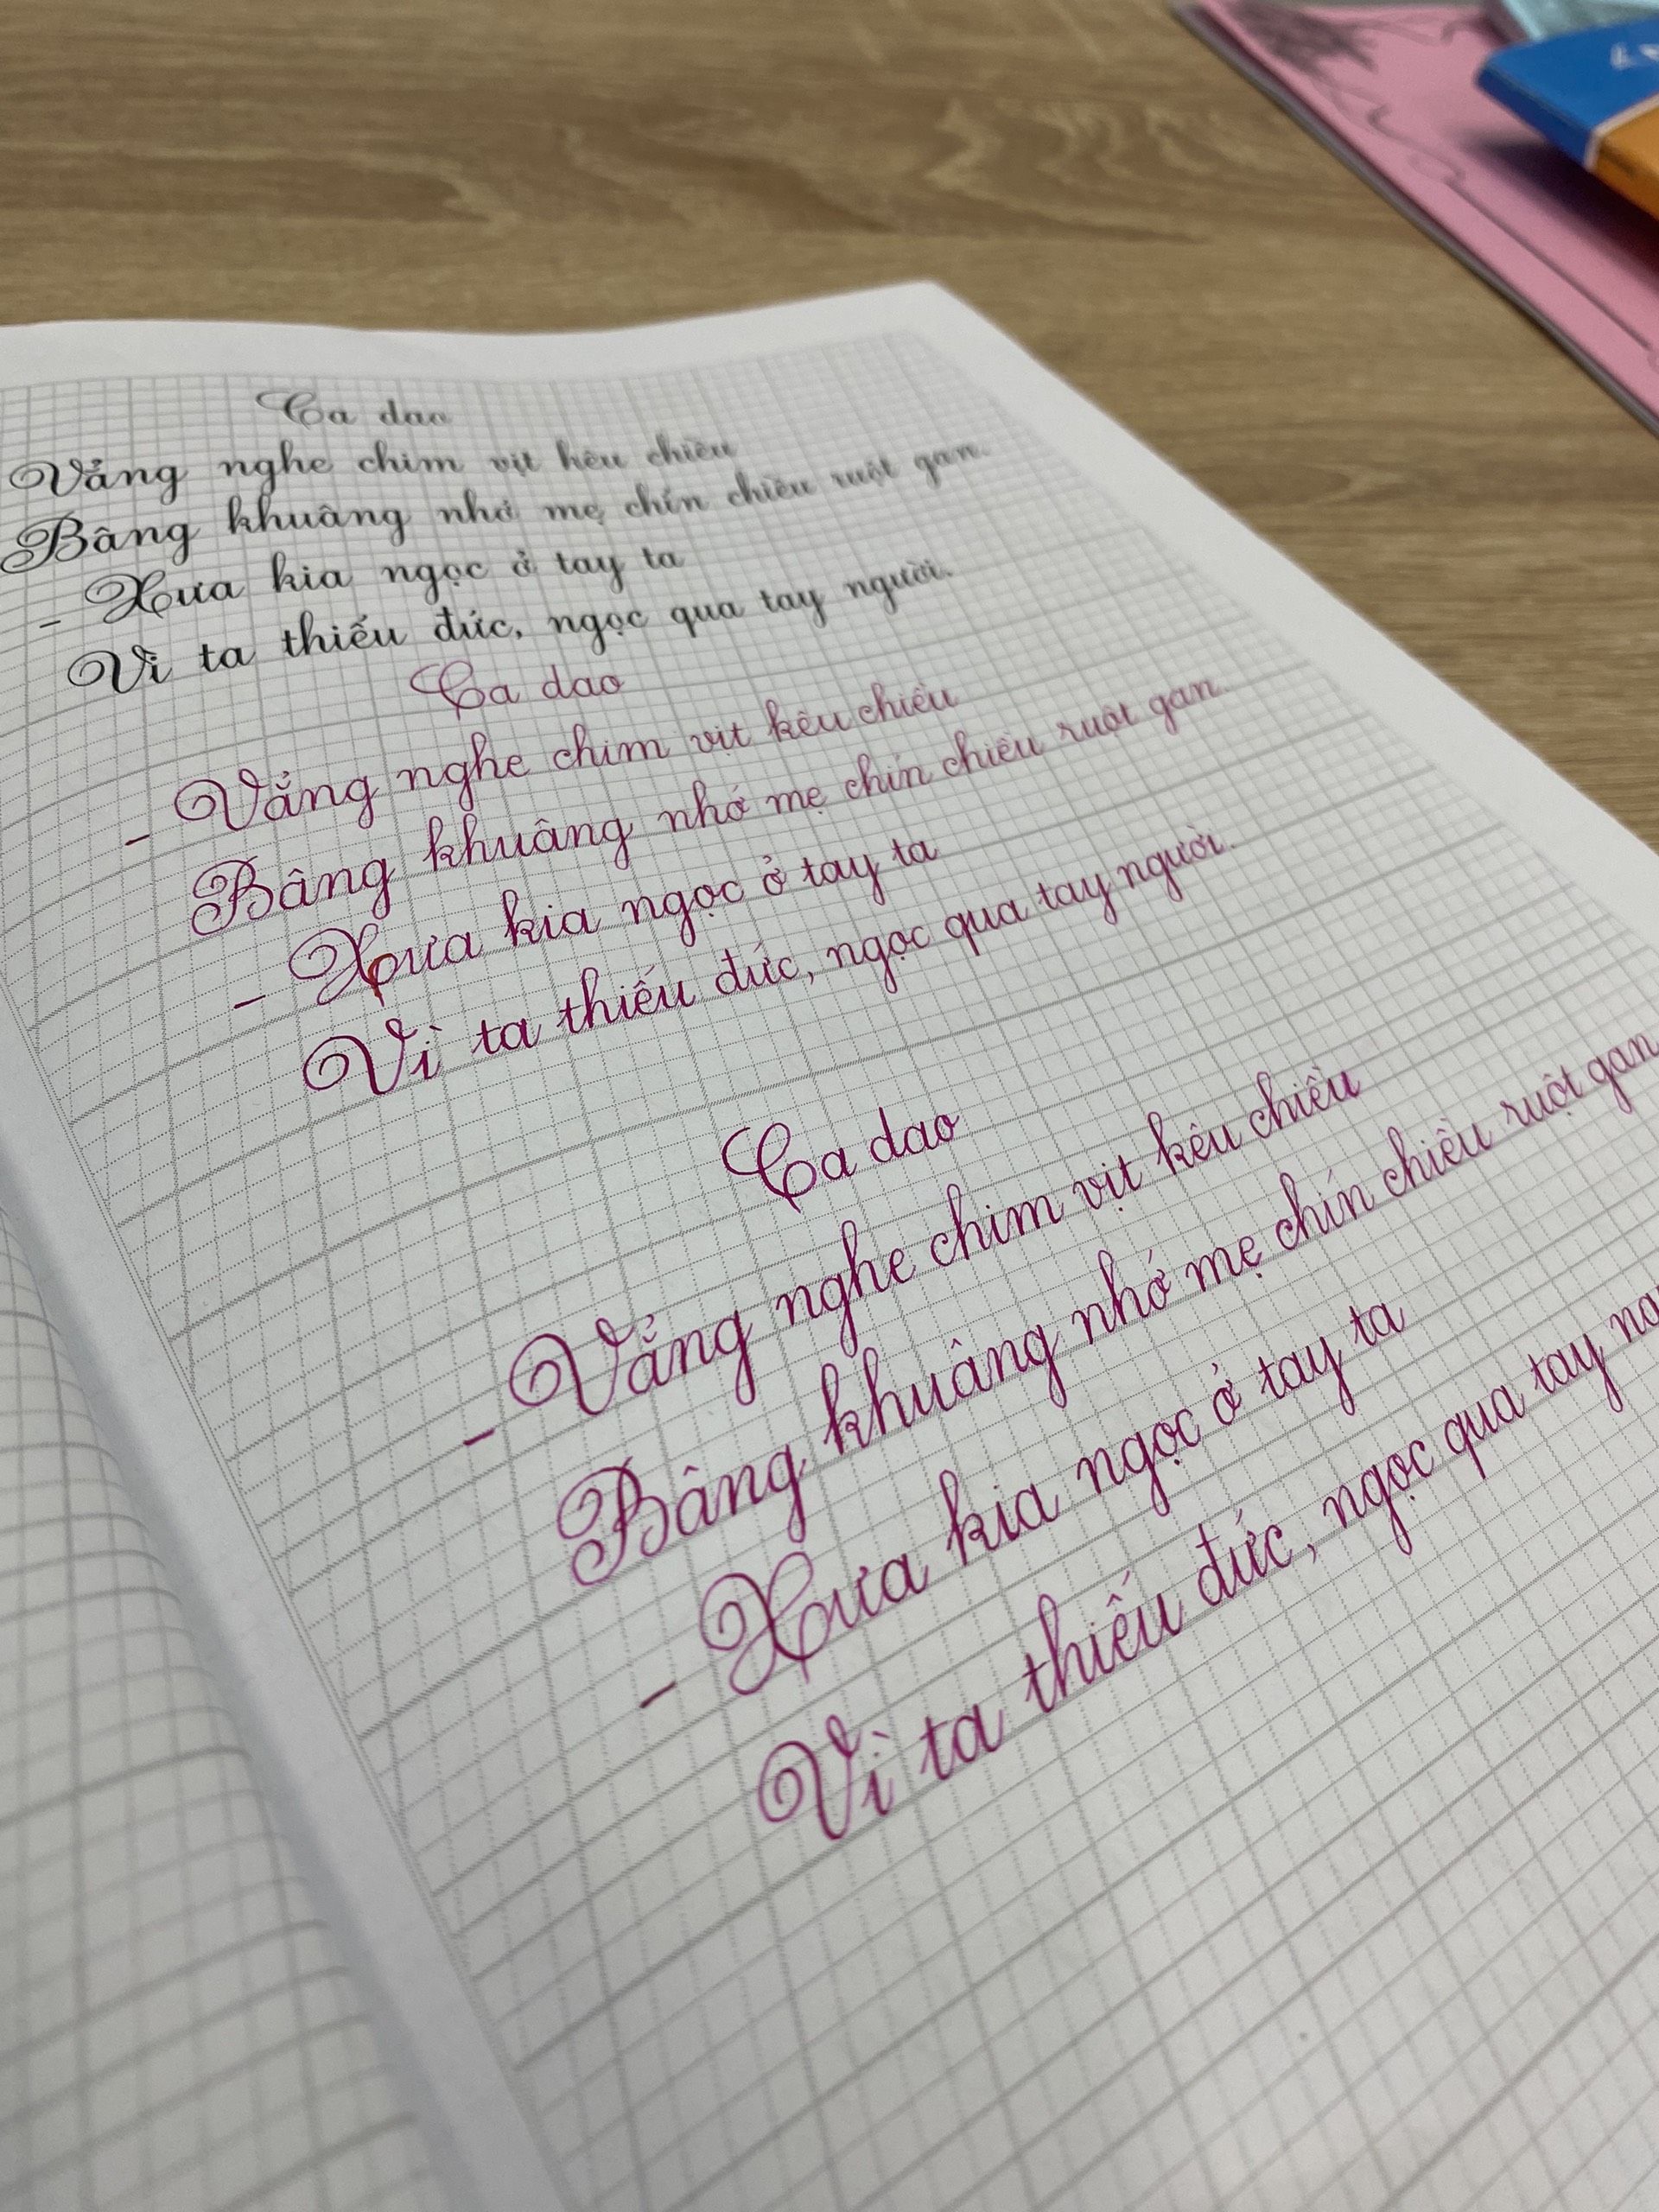 Ca dao
Vẳng nghe chim vịt kêu chiều
Bâng khuâng nhớ mẹ chín chiều ruột gan.
- Xưa kia ngọc ở tay ta
Vì ta thiếu đức, ngọc qua tay người.
Ca dao
- Vẳng nghe chim vịt kêu chiều
Bâng khuâng nhớ mẹ chín chiều ruột gan.
- Xưa kia ngọc ở tay ta
Vì ta thiếu đức, ngọc qua tay người.
Ca dao
- Vẳng nghe chim vịt kêu chiều
Bâng khuâng nhớ mẹ chín chiều ruột gan
- Xưa kia ngọc ở tay ta
Vì ta thiếu đức, ngọc qua tay